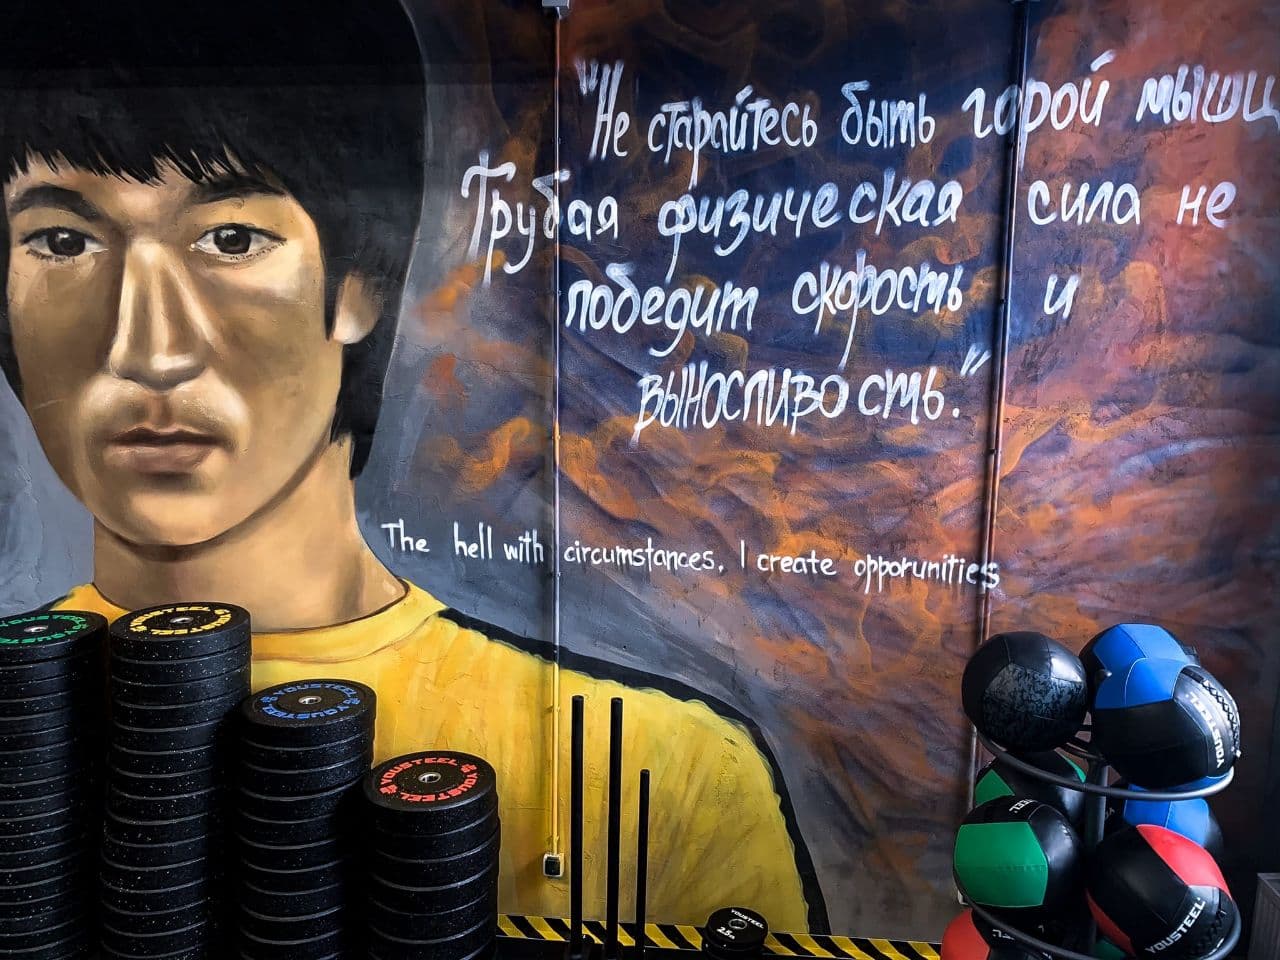 "Не старайтесь быть горой мышц
Грубая физическая сила не
победит скорость и
выносливость."
The hell with circumstances, I create opporunities
YOUSTEEL YOUSTEEL
YOUSTEEL YOUSTEEL
YOUSTEEL YOUSTEEL
YOUSTEEL YOUSTEEL
YOUSTEEL
2.5
YOUSTEEL
YOUSTEEL